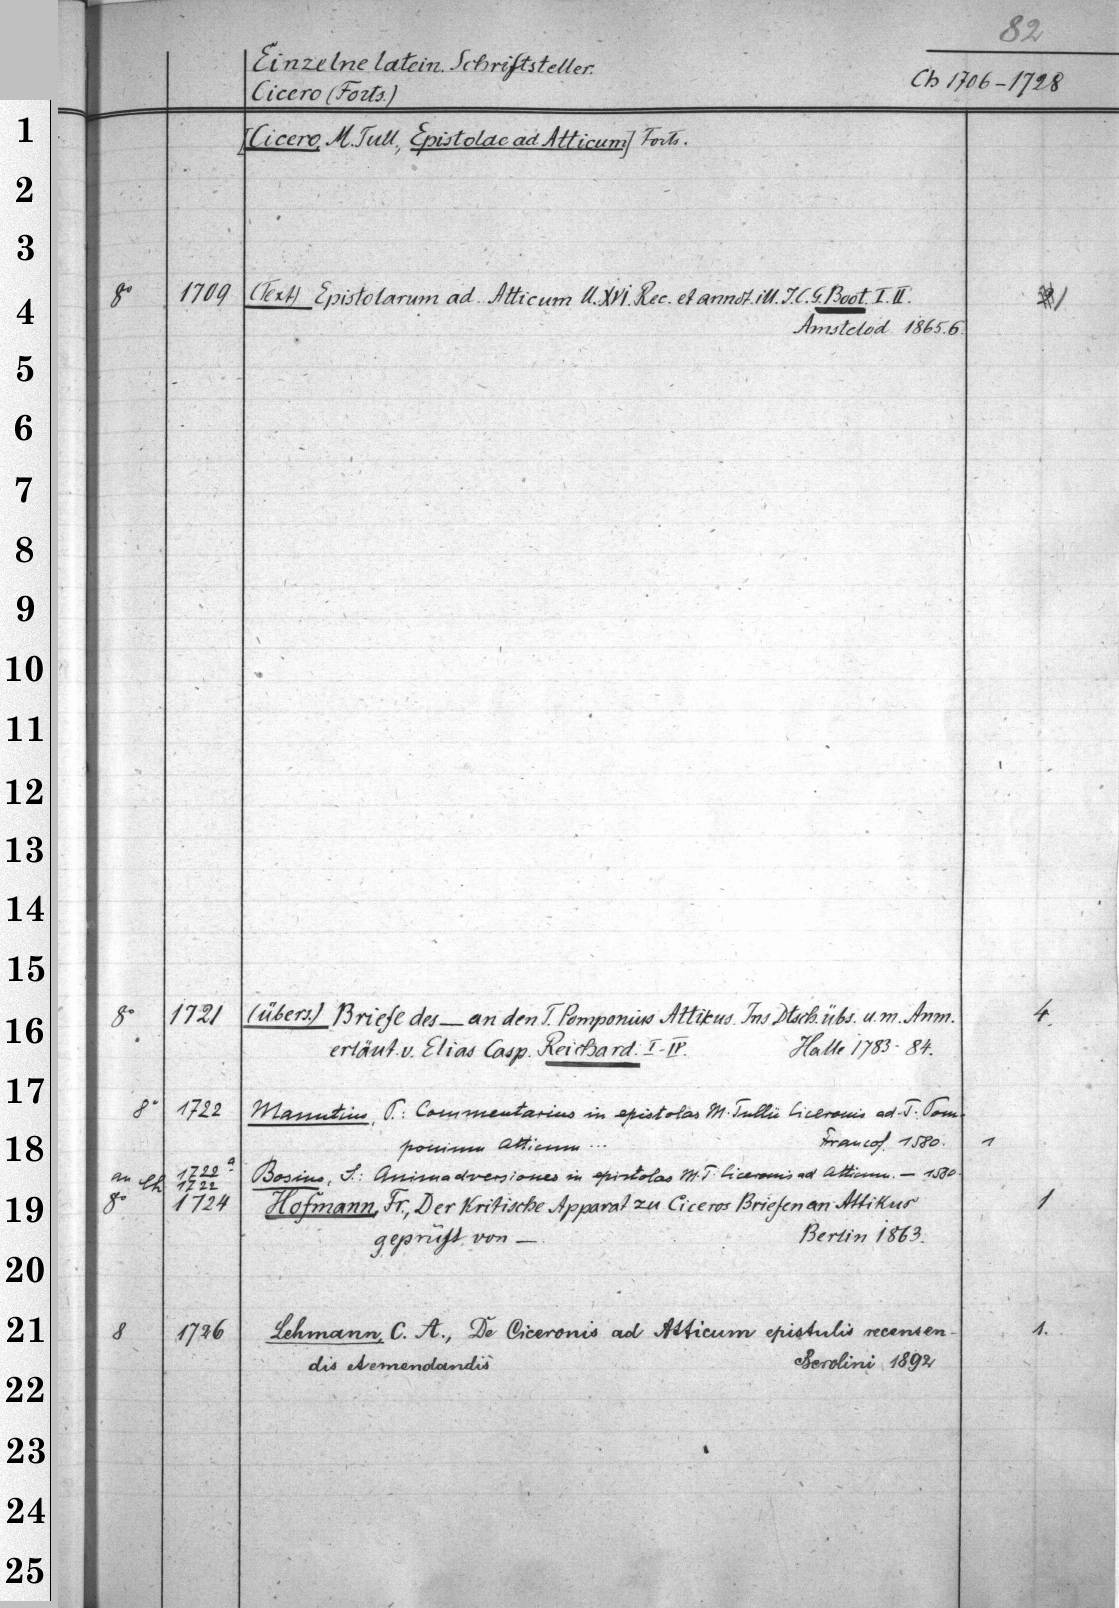 82
Einzelne latein. Schriftsteller.
Cicero (Forts.)
Ch 1706-1728
1
[Cicero, M. Tull, Epistolae ad Atticum] Forts.
2
3
8° 1709 (Text) Epistolarum ad Atticum ll. XVI. Rec. et annot. ill. J.C.G. Boot. I. II. 1
4
Amstelod 1865.6.
5
6
7
8
9
10
11
12
13
14
15
8° 1721 (übers.) Briefe des — an den T. Pomponius Attikus. Ins Dtsch. übs. u. m. Anm. 4.
16
erläut. v. Elias Casp. Reichard. I-IV. Halle 1783-84.
17
8° 1722 Manutius, P.: Commentarius in epistolas M. Tullii Ciceronis ad T. Pom-
18
ponium Atticum ... Francof. 1580. 1
an Ch 1722 a
1722 Bosius, S.: Animadversiones in epistolas M. T. Ciceronis ad Atticum. — 1580
19
8° 1724 Hofmann, Fr., Der Kritische Apparat zu Ciceros Briefen an Attikus 1
geprüft von — Berlin 1863.
20
21
8 1726 Lehmann, C. A., De Ciceronis ad Atticum epistulis recensen- 1.
dis et emendandis Berolini 1892
22
23
24
25